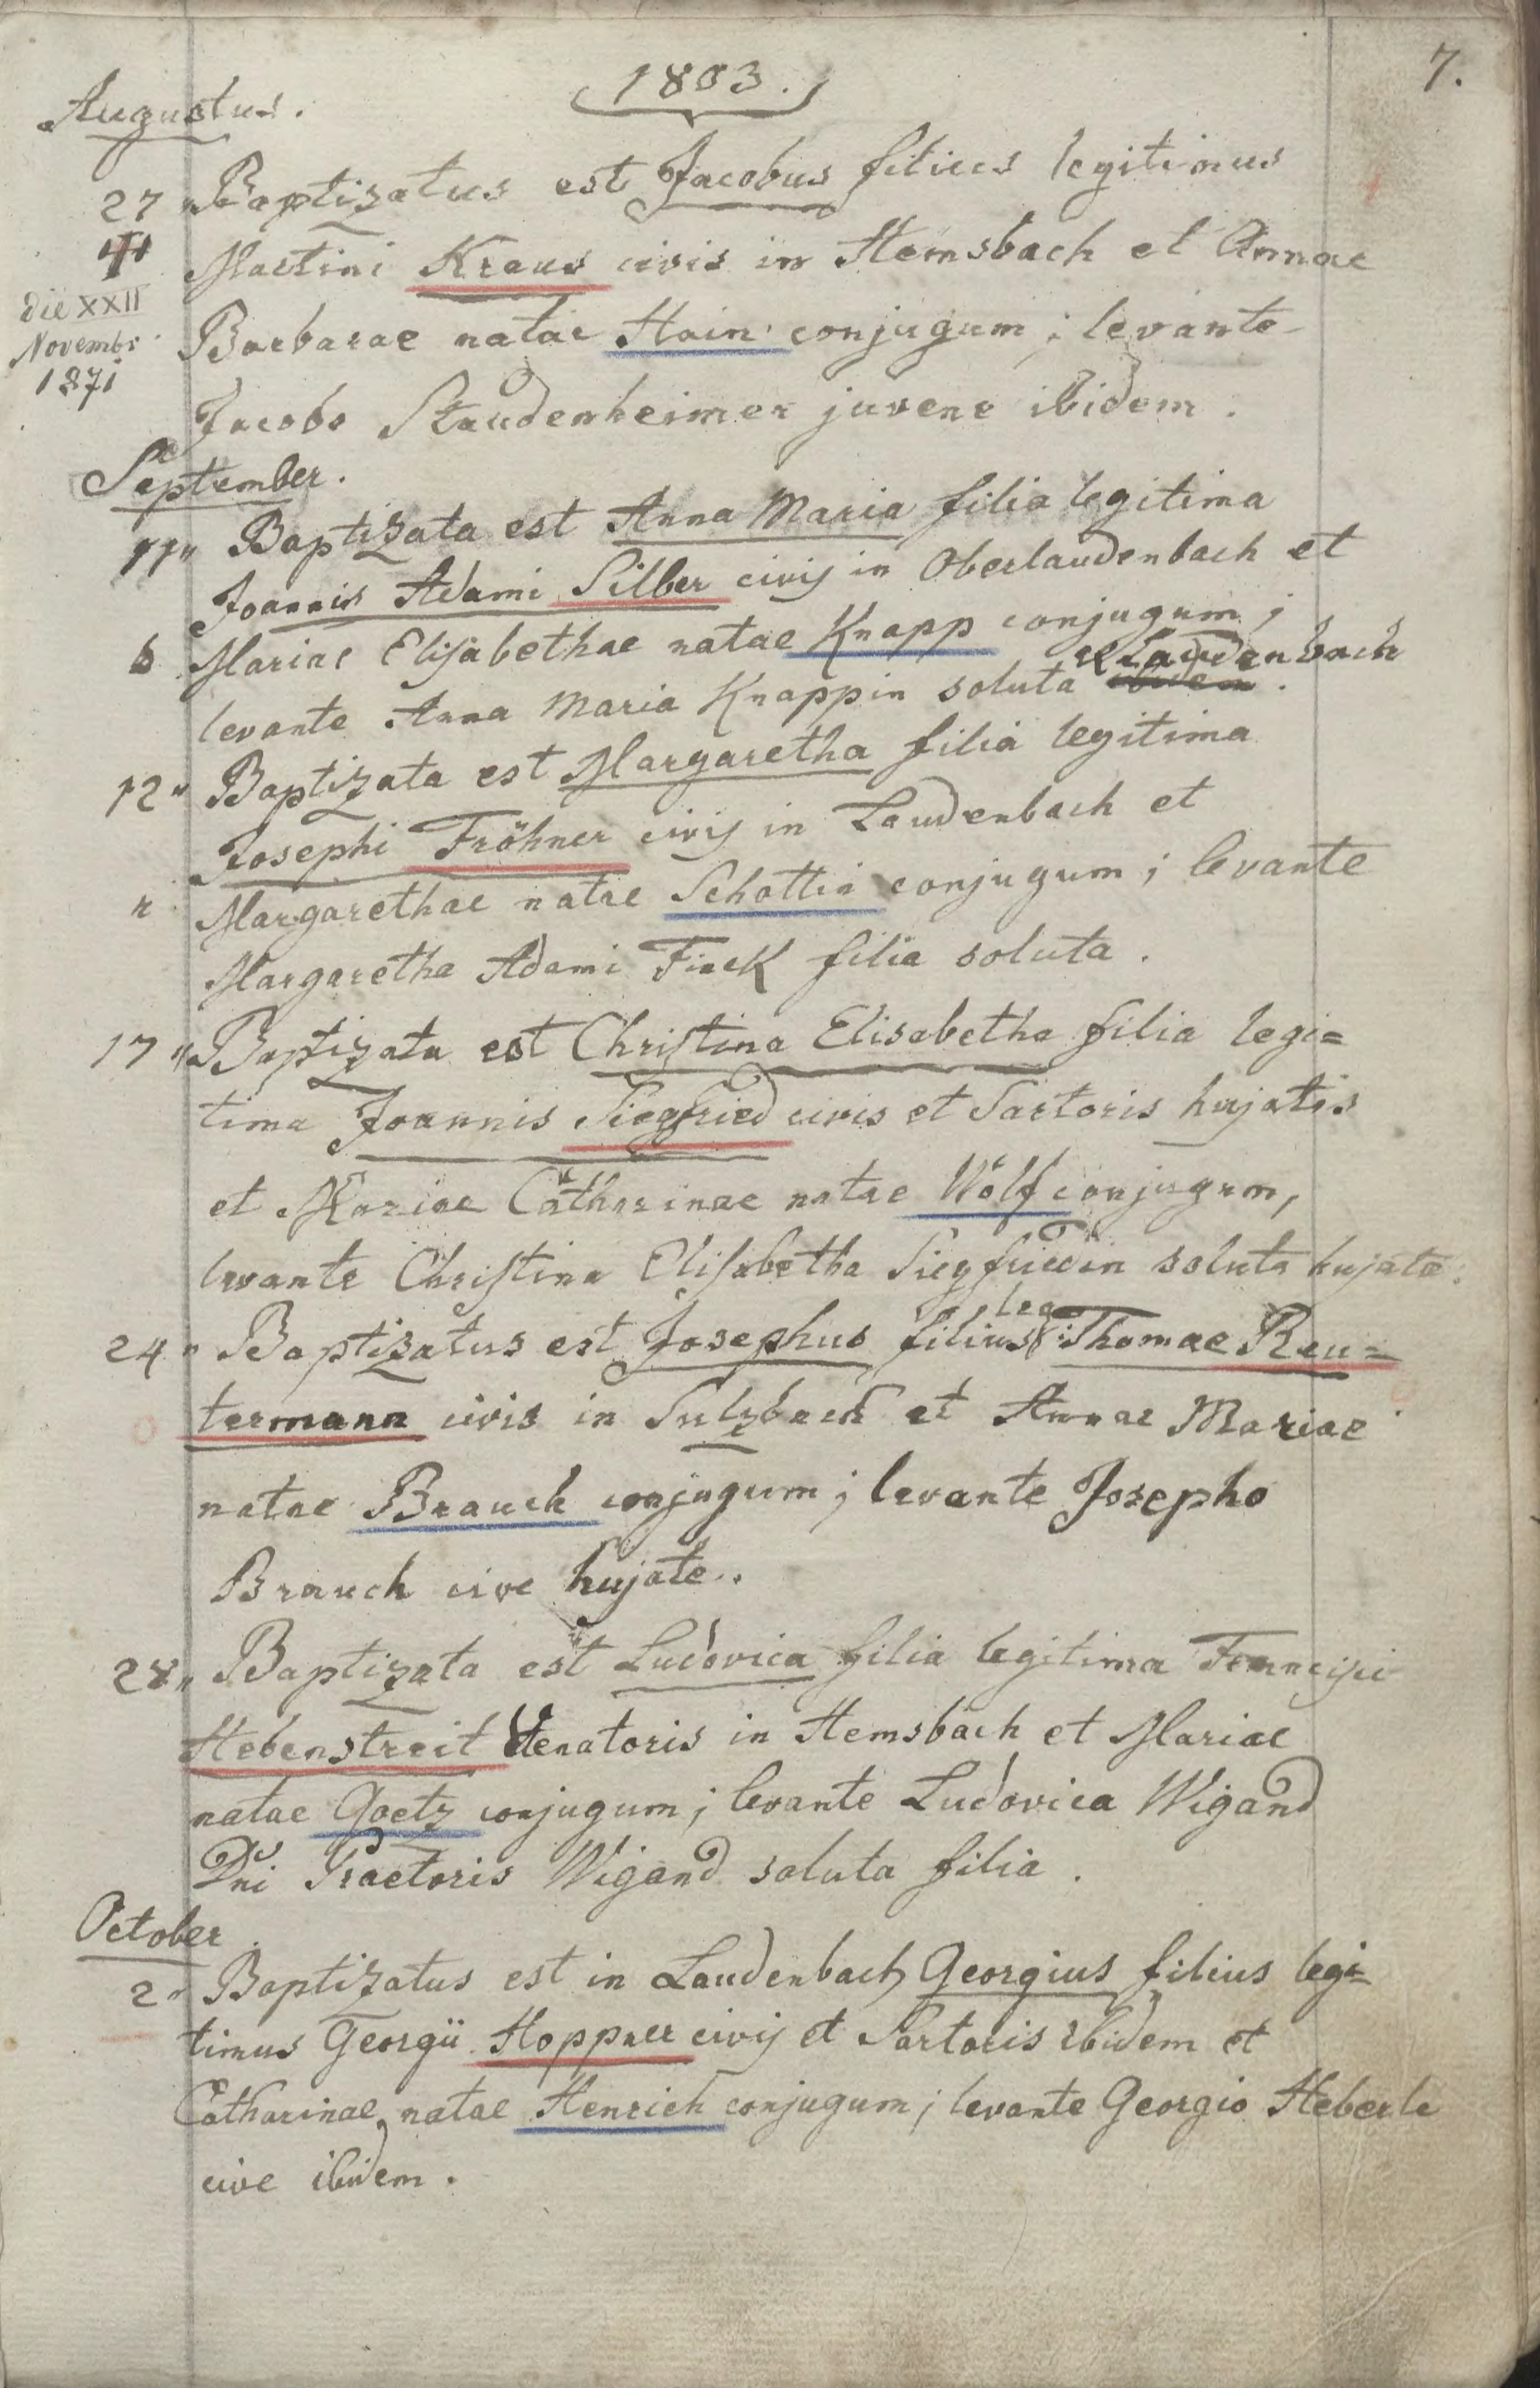 7.
1803.
Augustus.
27 " Baptizatus est Jacobus filius legitimus
Martini Kraus civis in Hemsbach et Annae
die XXII
Novembr
1871
Barbarae natae Hain conjugum; levante
Jacobo Staudenheimer juvene ibidem.
September.
11 " Baptizata est Anna Maria filia legitima
Joannis Adami Silber civis in Oberlaudenbach et
Mariae Elisabethae natae Knapp conjugum;
levante Anna Maria Knappin soluta ibidem. Laudenbach
12 " Baptizata est Margaretha filia legitima
Josephi Fröhner civis in Laudenbach et
Margarethae natae Schottin conjugum; levante
Margaretha Adami Finck filia soluta.
17 " Baptizata est Christina Elisabetha filia legi=
tima Joannis Siegfried civis et Sartoris hujatis
et Mariae Catharinae natae Wölf conjugum,
levante Christina Elisabetha Siegfriedin soluta hujate.
24 " Baptizatus est Josephus filius leg: Thomae Reu=
termann civis in Sulzbach et Annae Mariae
natae Brauch conjugum; levante Josepho
Brauch cive hujate.
28 " Baptizata est Ludovica filia legitima Francisci
Hebenstreit Venatoris in Hemsbach et Mariae
natae Goetz conjugum; levante Ludovica Wigand
Dni Praetoris Wigand soluta filia.
October
2 " Baptizatus est in Laudenbach Georgius filius legi=
timus Georgii Hoppner civis et Sartoris ibidem et
Catharinae natae Henrich conjugum; levante Georgio Heberle
cive ibidem.